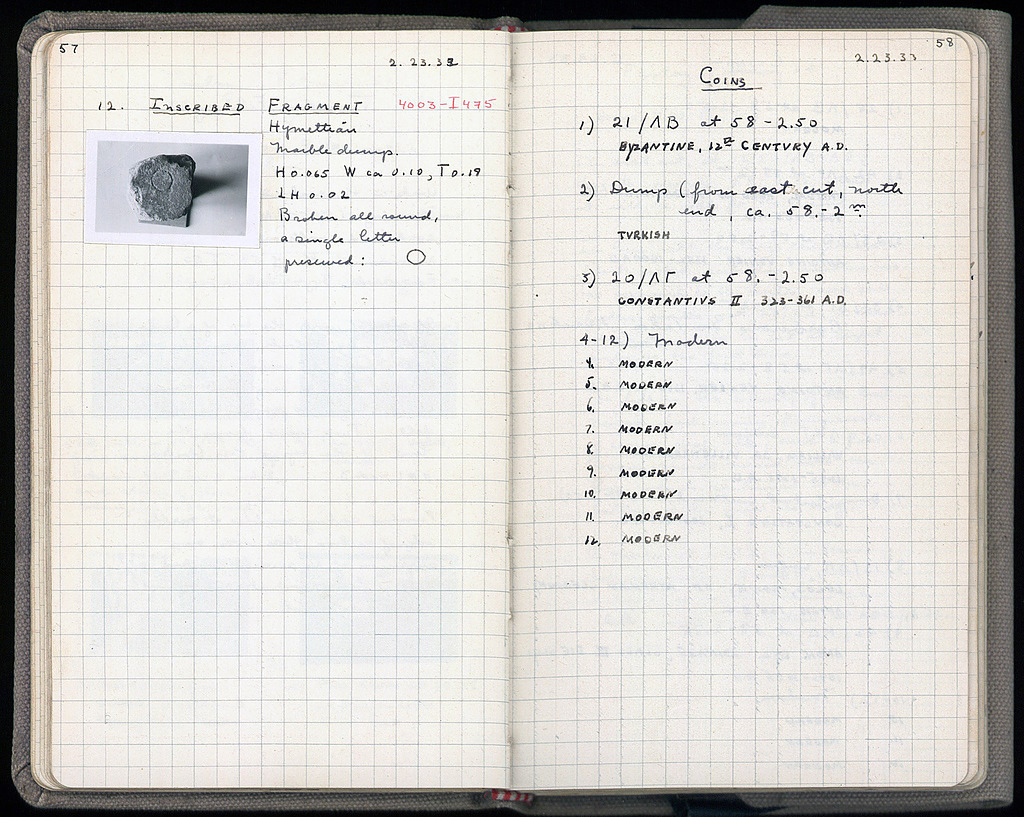 57
2.23.33
12. INSCRIBED FRAGMENT 4003-I 475
Hymettian
Marble dump.
H 0.065 W ca 0.10, T 0.19
LH 0.02
Broken all round,
a single letter
preserved: O
58
2.23.33
COINS
1) 21/ΛΒ at 58 -2.50
BYZANTINE, 12th CENTURY A.D.
2) Dump (from east cut, north
end, ca. 58.-2 m
TURKISH
3) 20/ΛΓ at 58. -2.50
CONSTANTIUS II 323-361 A.D.
4-12) Modern
4. MODERN
5. MODERN
6. MODERN
7. MODERN
8. MODERN
9. MODERN
10. MODERN
11. MODERN
12. MODERN